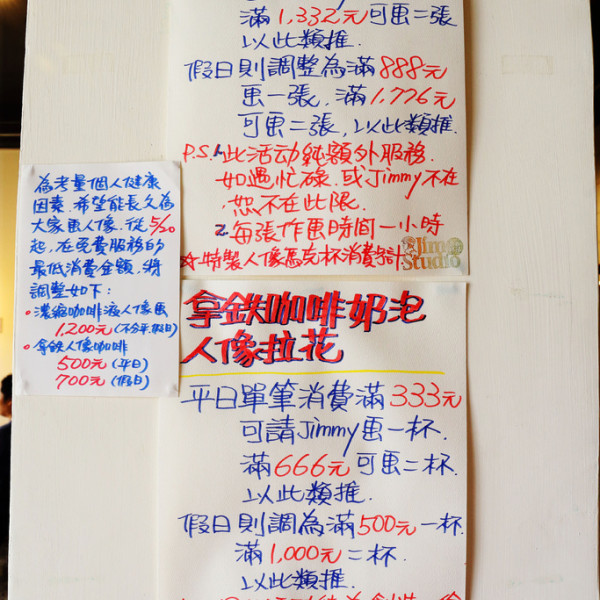 滿1,332元可畫二張
以此類推.
假日則調整為滿888元
畫一張,滿1,776元
可畫二張,以此類推.
P.S. 1.此活动純額外服務.
如遇忙碌.或Jimmy不在
.恕不在此限.
2.每張作畫時間一小時
☆特製人像馬克杯消費另計
Jimmy Studio
為考量個人健康
因素.希望能長久為
大家畫人像,從5/20
起,在免費服務的
最低消費金額,將
調整如下:
•濃縮咖啡液人像畫
1,200元(不分平.假日)
•拿鉄人像咖啡
500元(平日)
700元(假日)
拿鉄咖啡奶泡
人像拉花
平日單筆消費滿333元
可請Jimmy畫一杯.
滿666元可畫二杯.
以此類推.
假日則調為滿500元一杯
滿1,000元二杯.
以此類推.